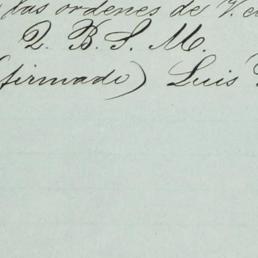 las ordenes de V.
Q. B. S. M.
(firmado) Luis